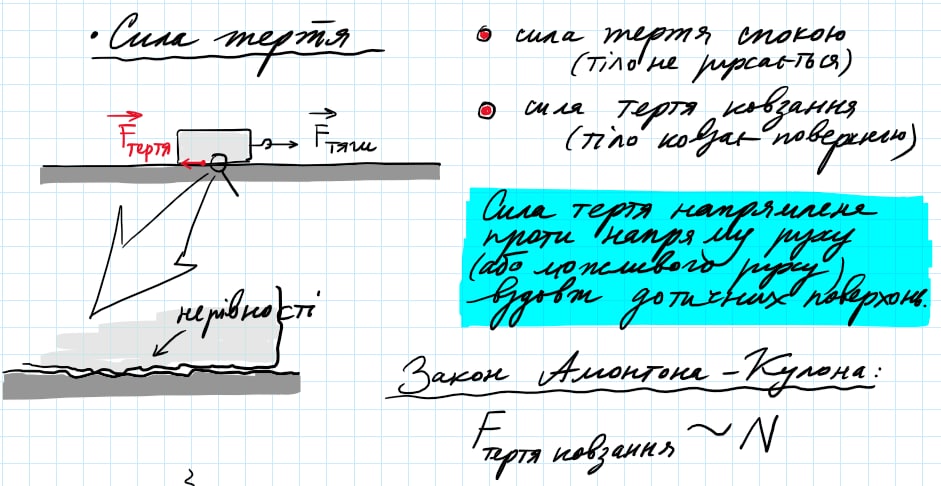 • Сила тертя
F тертя
F тяги
нерівності
• сила тертя спокою
(тіло не рухається)
• сила тертя ковзання
(тіло ковзає поверхнею)
Сила тертя напрямлена
проти напряму руху
(або можливого руху)
вздовж дотичних поверхонь.
Закон Амонтона – Кулона:
F тертя ковзання ~ N